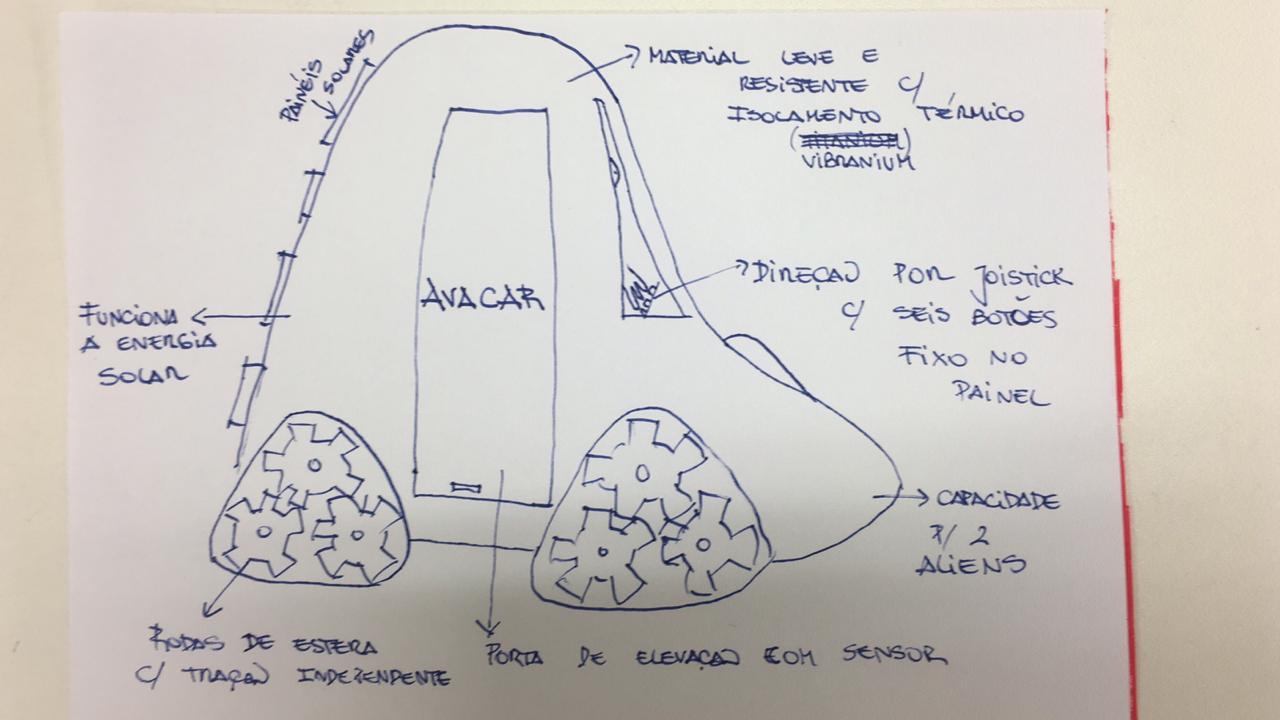 PAINÉIS
SOLARES
MATERIAL LEVE E
RESISTENTE C/
ISOLAMENTO TÉRMICO
(TITANIUM)
VIBRANIUM
AVACAR
DIREÇÃO POR JOISTICK
C/ SEIS BOTÕES
FIXO NO
PAINEL
FUNCIONA
A ENERGIA
SOLAR
CAPACIDADE
P/ 2
ALIENS
RODAS DE ESTERA
C/ TRAÇÃO INDEPENDENTE
PORTA DE ELEVAÇÃO COM SENSOR